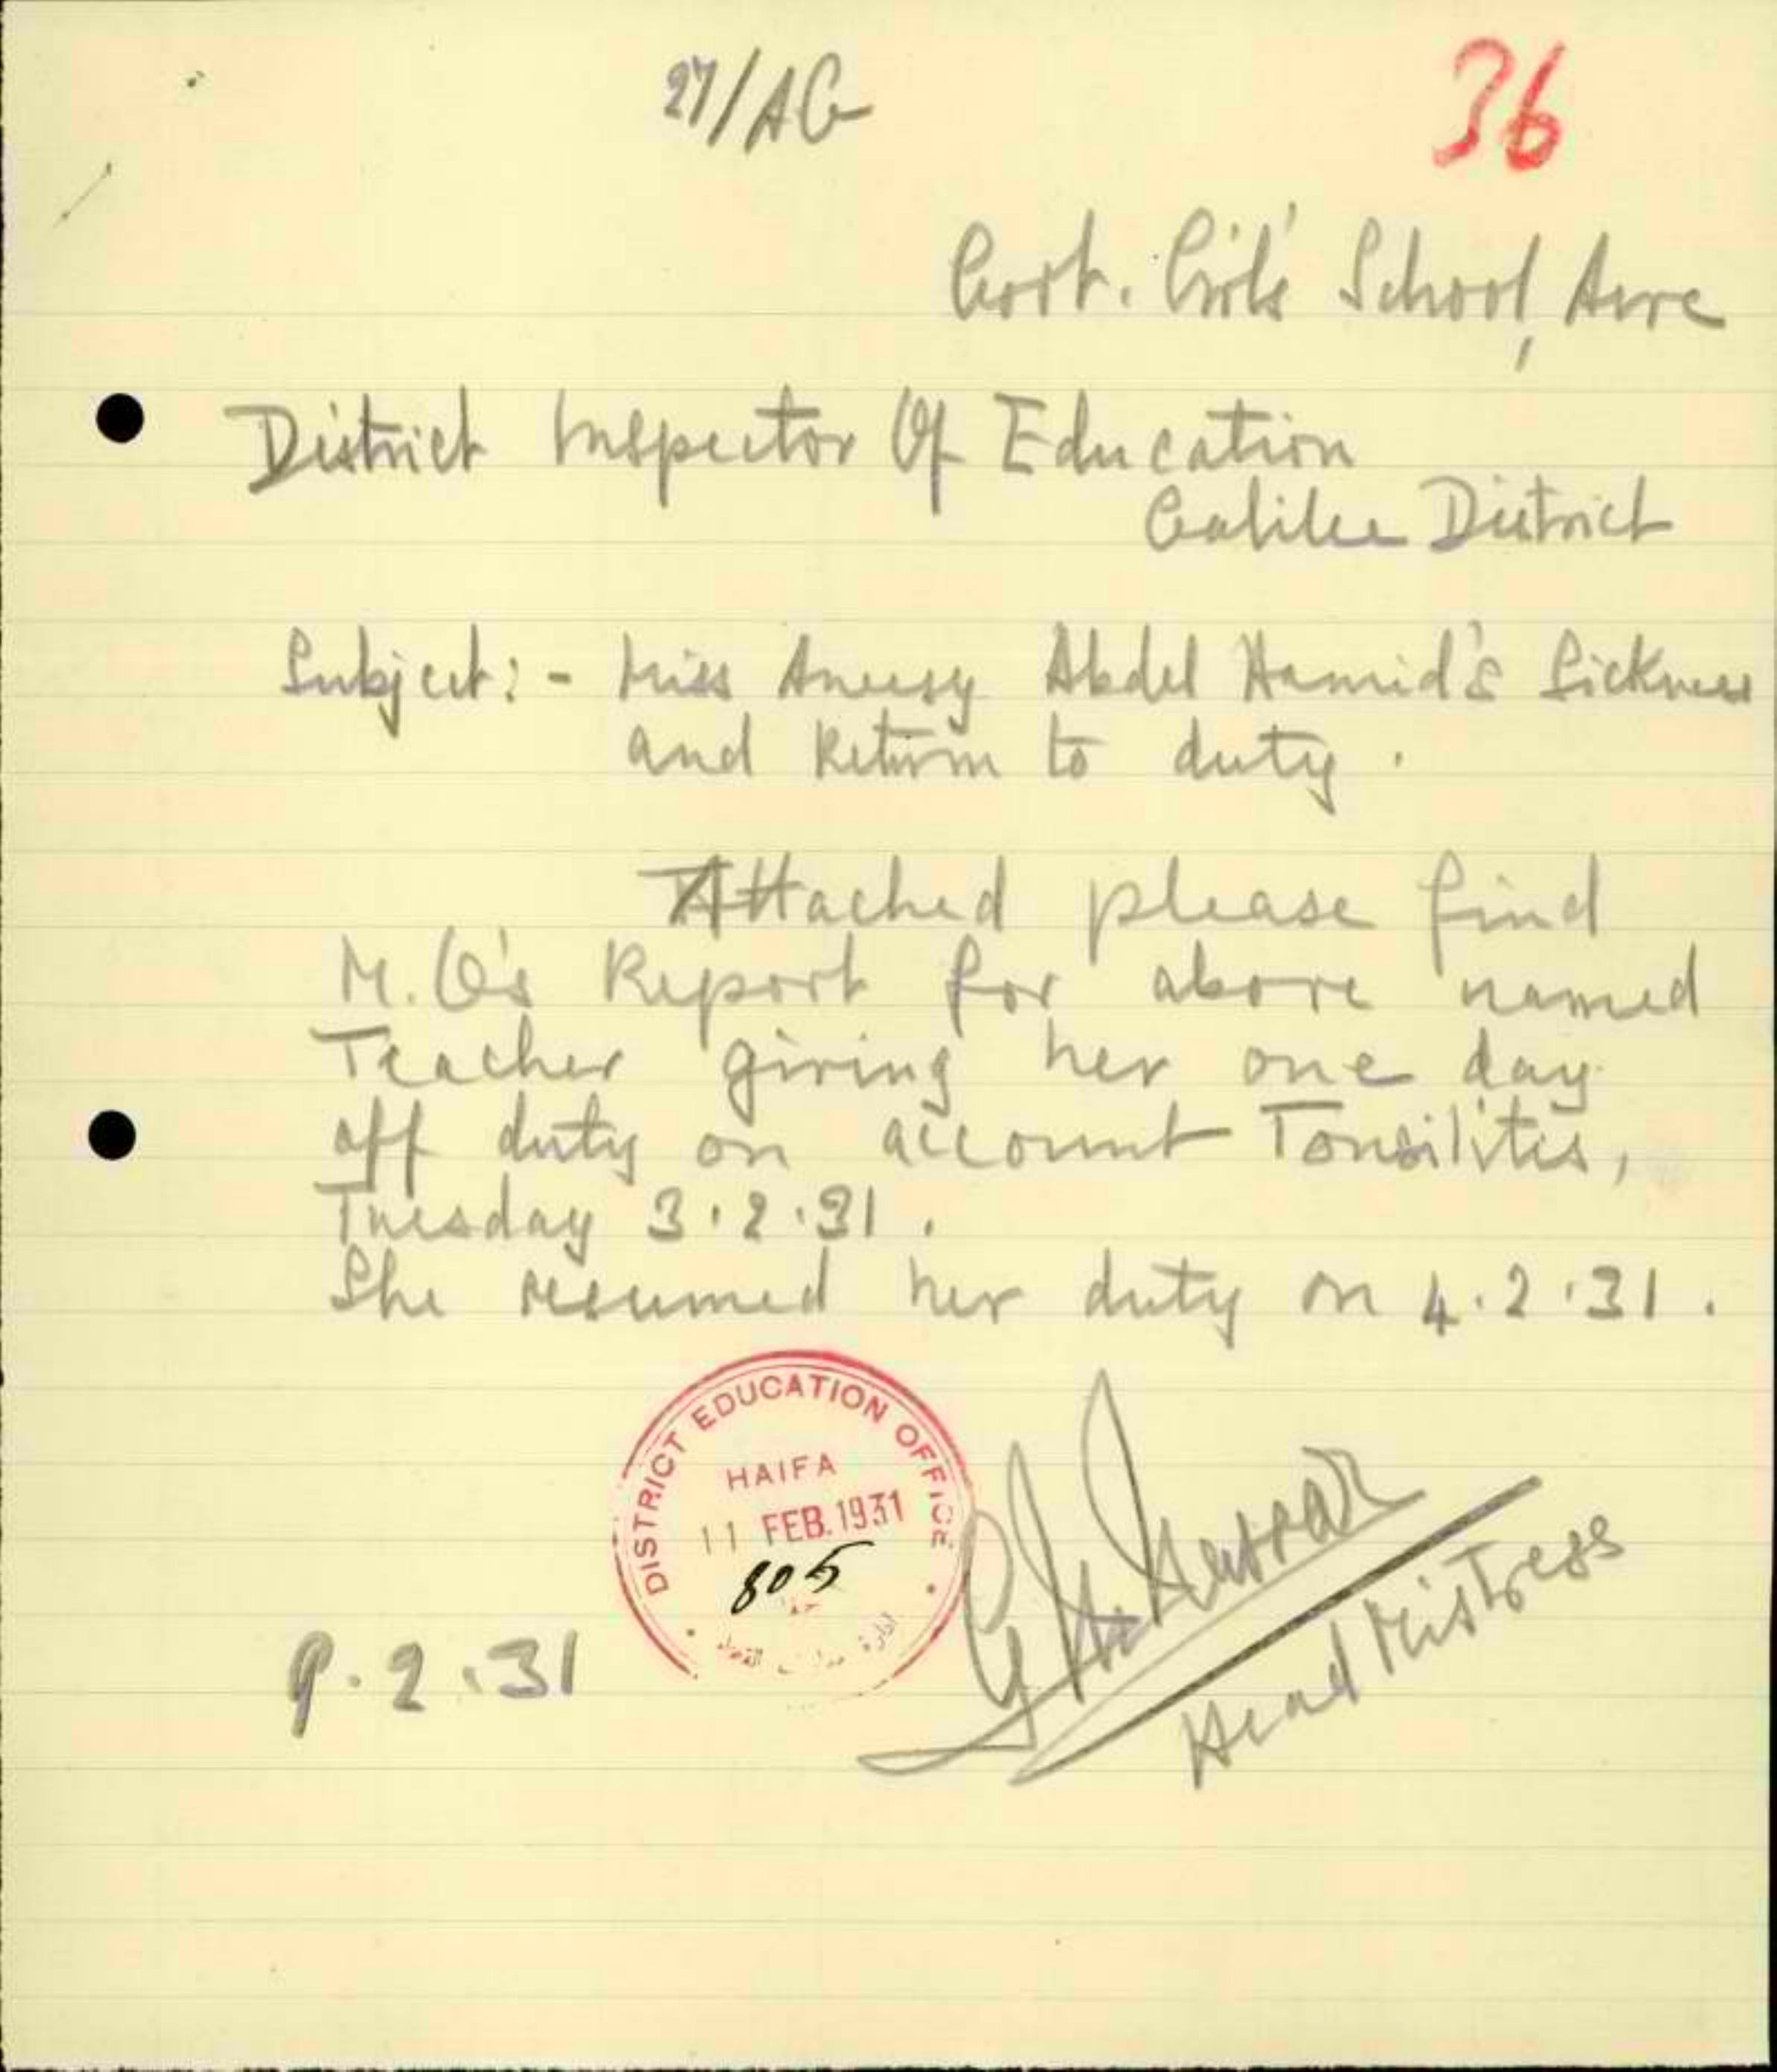 27/AG
36
Govt. Girls' School, Acre
District Inspector Of Education
Galilee District
Subject:- Miss Aneesy Abdel Hamid's Sickness
and Return to duty.
Attached please find
M.O's Report for above named
Teacher giving her one day
off duty on account Tonsilitis,
Tuesday 3.2.31.
She resumed her duty on 4.2.31.
DISTRICT EDUCATION OFFICE
HAIFA
11 FEB. 1931
805
إدارة
Head Mistress
9.2.31